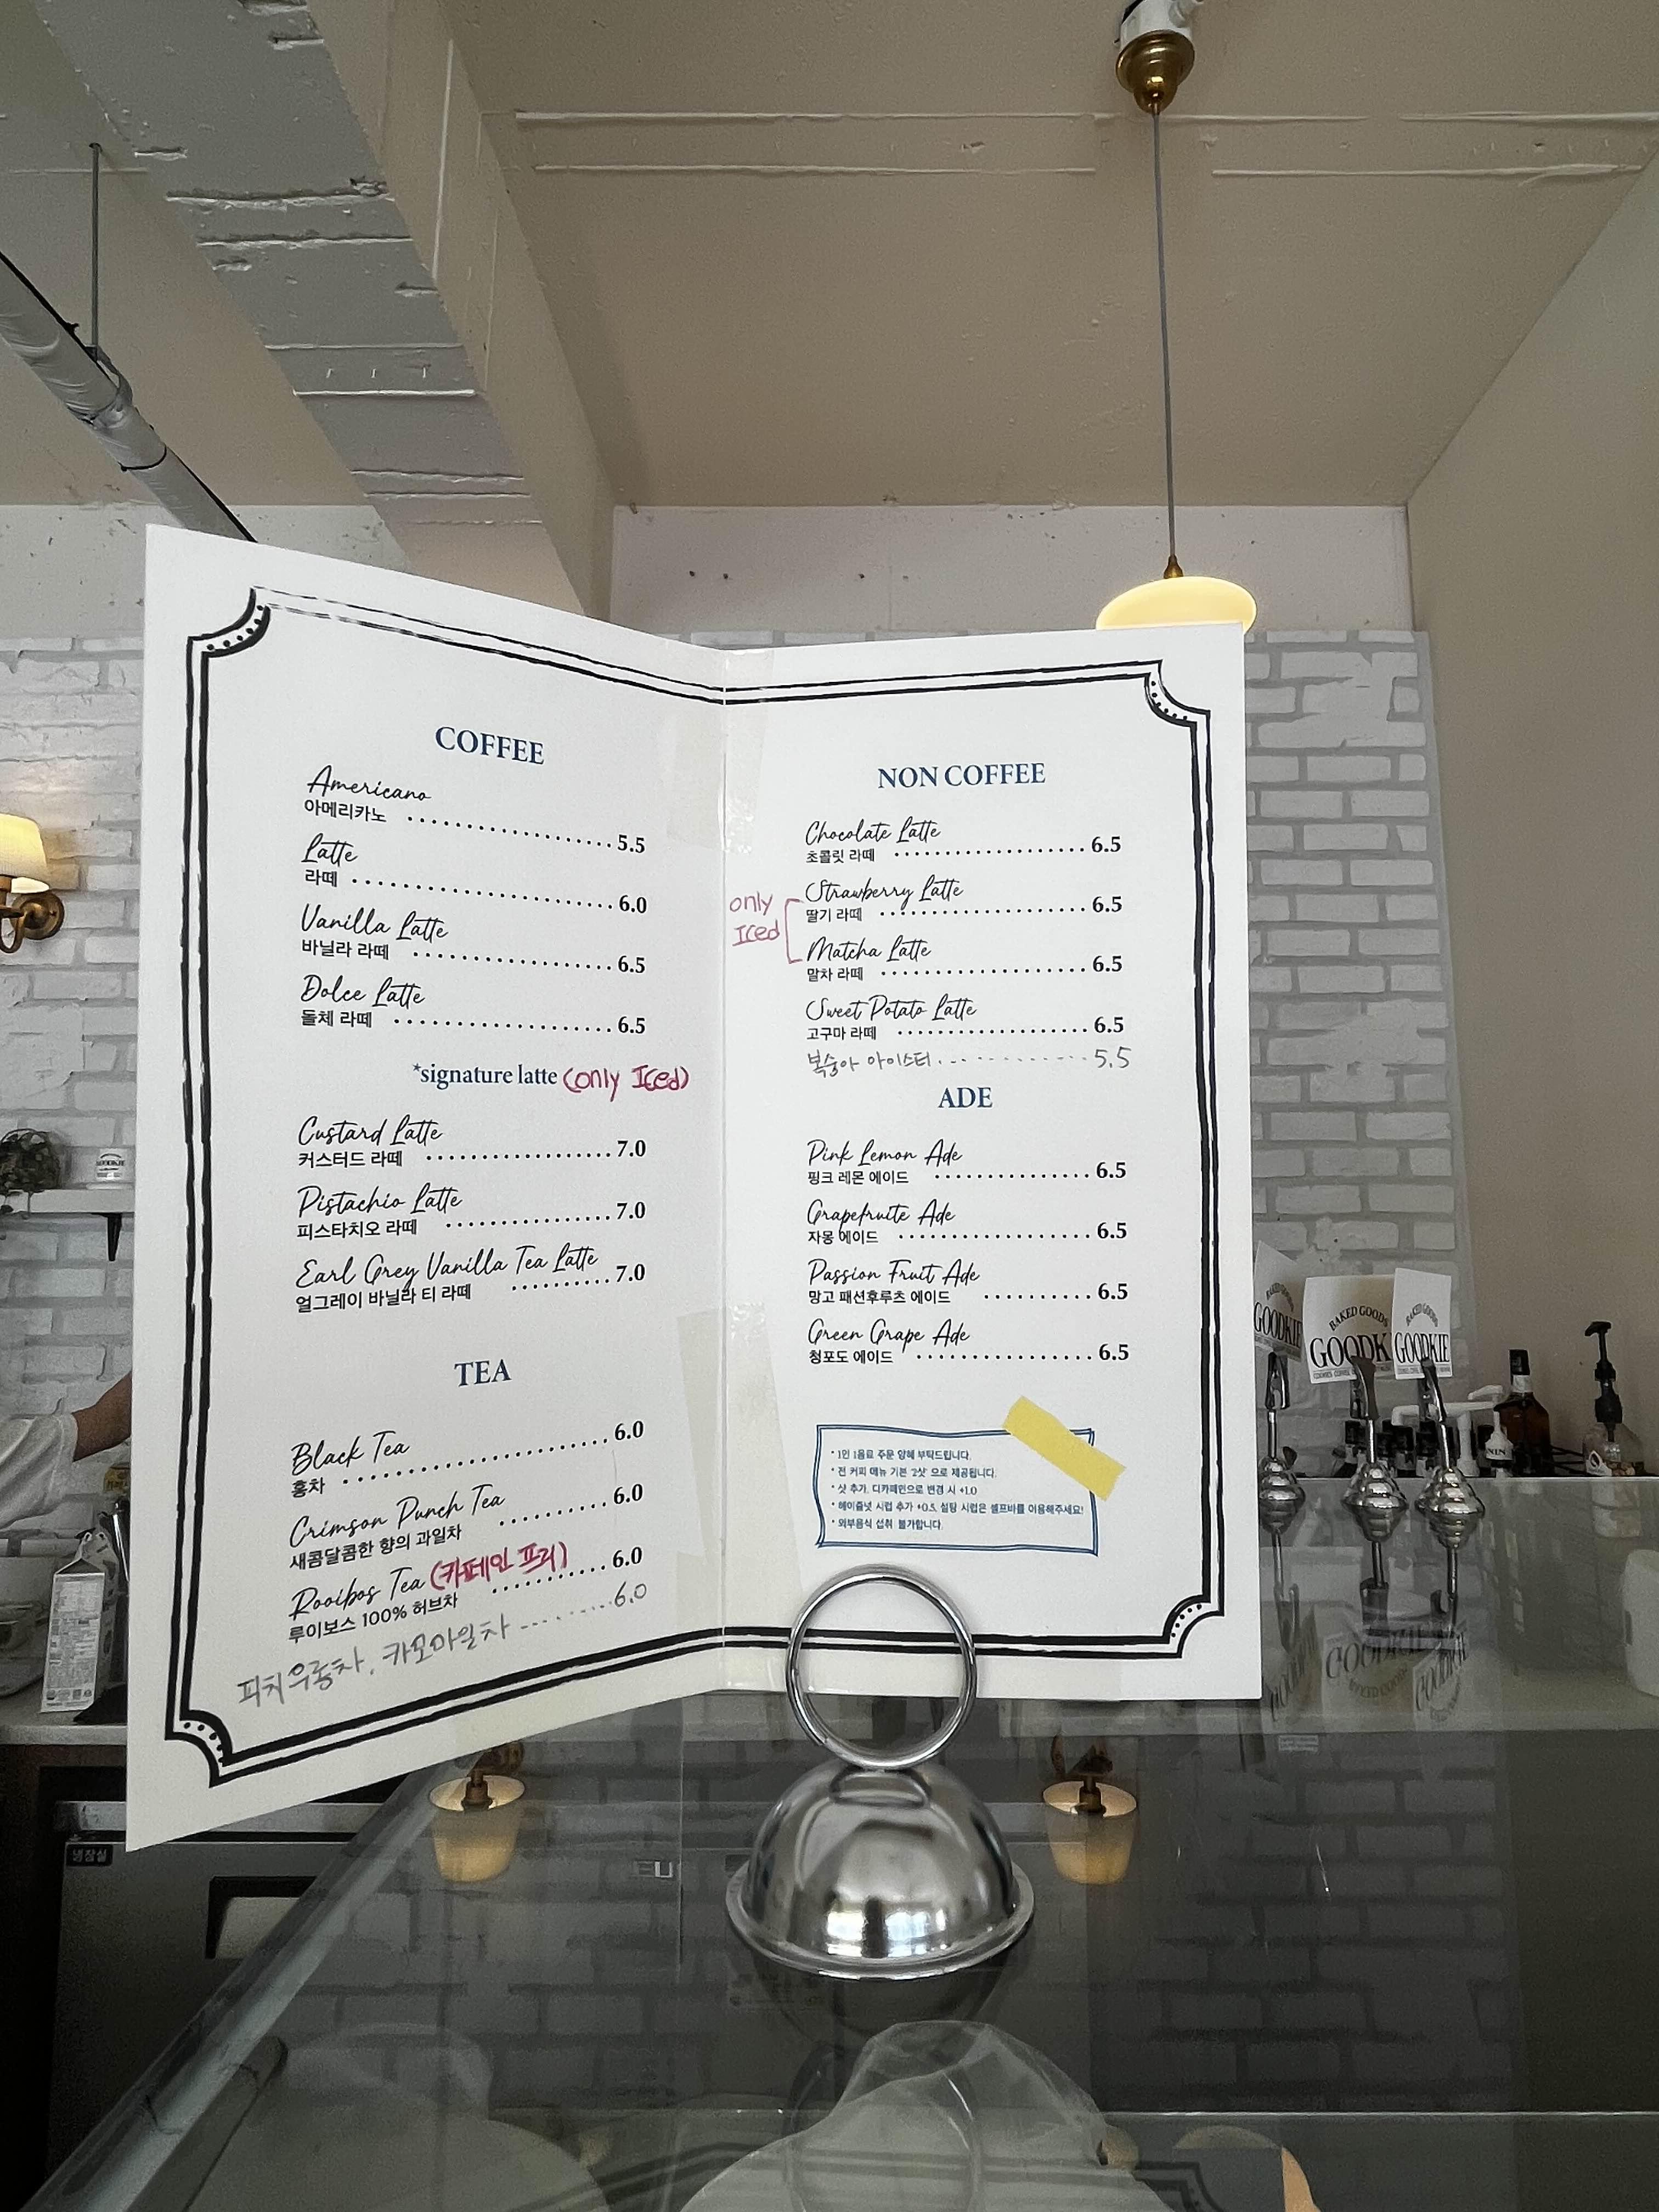 COFFEE
Americano
아메리카노 5.5
Latte
라떼 6.0
Vanilla Latte
바닐라 라떼 6.5
Dolce Latte
돌체 라떼 6.5
*signature latte (only Iced)
Custard Latte
커스터드 라떼 7.0
Pistachio Latte
피스타치오 라떼 7.0
Earl Grey Vanilla Tea Latte
얼그레이 바닐라 티 라떼 7.0
TEA
Black Tea
홍차 6.0
Crimson Punch Tea
새콤달콤한 향의 과일차 6.0
Rooibos Tea (카페인 프리)
루이보스 100% 허브차 6.0
피치우롱차, 카모마일차 6.0
NON COFFEE
Chocolate Latte
초콜릿 라떼 6.5
only
Iced
Strawberry Latte
딸기 라떼 6.5
Matcha Latte
말차 라떼 6.5
Sweet Potato Latte
고구마 라떼 6.5
복숭아 아이스티 5.5
ADE
Pink Lemon Ade
핑크 레몬 에이드 6.5
Grapefruite Ade
자몽 에이드 6.5
Passion Fruit Ade
망고 패션후루츠 에이드 6.5
Green Grape Ade
청포도 에이드 6.5
• 1인 1음료 주문 양해 부탁드립니다.
• 전 커피 메뉴 기본 '2샷' 으로 제공됩니다.
• 샷 추가, 디카페인으로 변경 시 +1.0
• 헤이즐넛 시럽 추가 +0.5, 설탕 시럽은 셀프바를 이용해주세요!
• 외부음식 섭취 불가합니다.
BAKED GOODS
GOODKIE
BAKED GOODS
GOODK
GOODKIE
냉장실